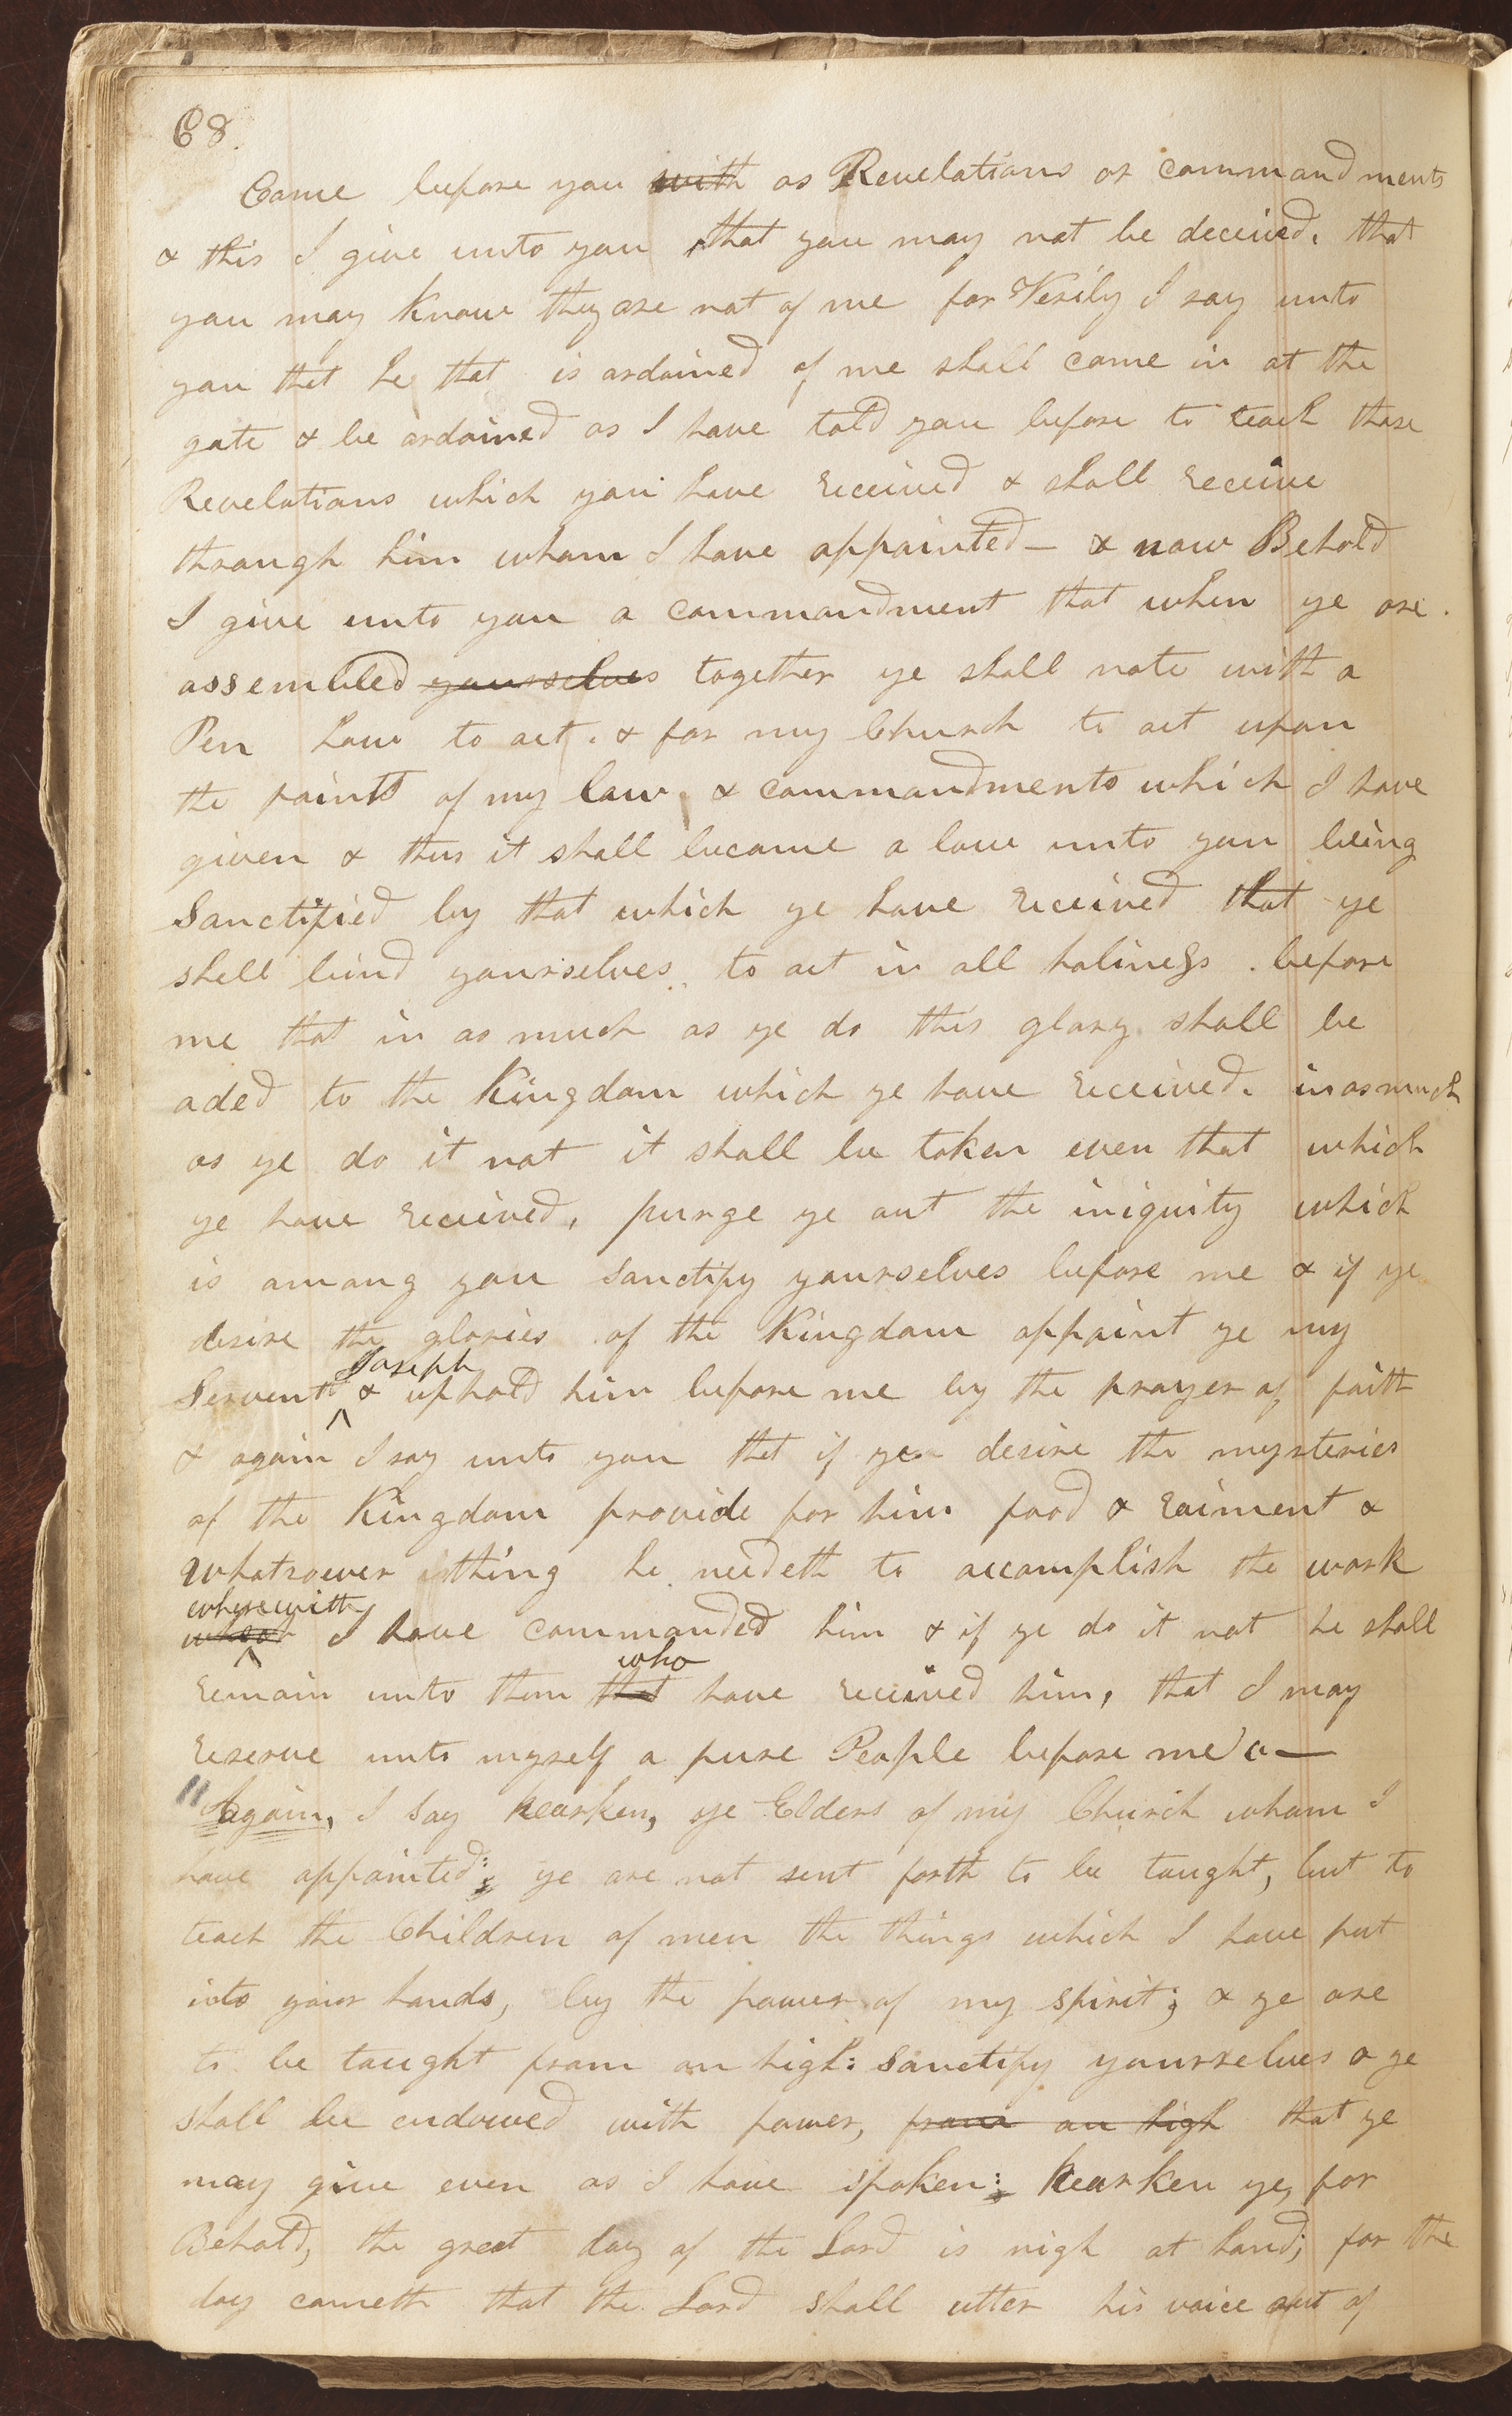 68.
Come before you with as Revelations or commandments
& this I give unto you that you may not be deceived. that
you may know they are not of me for Verily I say unto
you that he that is ordained of me shall come in at the
gate & be ordained as I have told you before to teach those
Revelations which you have received & shall receive
through him whom I have appointed— & now Behold
I give unto you a commandment that when ye are.
assembled yourselves together ye shall note with a
Pen how to act. & for my Church to act upon
the points of my law. & commandments which I have
given & thus it shall become a law unto you being
Sanctified by that which ye have received that ye
shall bind yourselves to act in all holiness. before
me that in as much as ye do this glory shall be
aded to the Kingdom which ye have received. inasmuch
as ye do it not it shall be taken even that which
ye have received, purge ye out the iniquity which
is among you sanctify yourselves before me & if ye
desire the glories of the Kingdom appoint ye my
Joseph
Servent & uphold him before me by the prayer of faith
& again I say unto you that if ye desire the mysteries
of the Kingdom provide for him food & raiment &
whatsoever thing he needeth to accomplish the work
wherewith
I have commanded him & if ye do it not he shall
who
remain unto them that have received him, that I may
reserve unto myself a pure People before me—
"Again, I say hearken, ye Elders of my Church whom I
have appointed; ye are not sent forth to be taught, but to
teach the Children of men the things which I have put
into your hands, by the power of my spirit; & ye are
to be taught from on high: Sanctify yourselves & ye
shall be endowed with power, from on high that ye
may give even as I have spoken: hearken ye, for
Behold, the great day of the Lord is nigh at hand; for the
day cometh that the Lord shall utter his voice out of